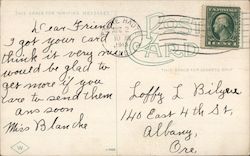 THIS SPACE FOR WRITING MESSAGES
POST
CARD
Dear Friend
I got your card
think it very nice
would be glad to
get more if you
care to send them
ans soon
Miss Blanche
THIS SPACE FOR ADDRESS ONLY
Loffy L Bilyeu
140 East 4th St,
Albany,
Ore.